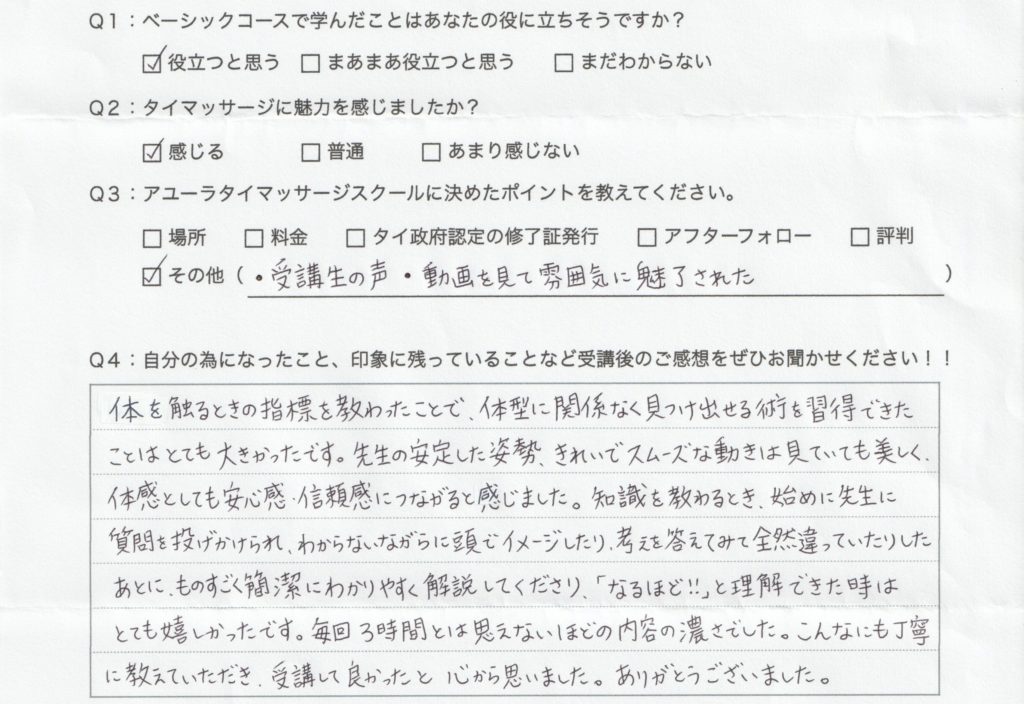 Q1：ベーシックコースで学んだことはあなたの役に立ちそうですか？
☑ 役立つと思う □ まあまあ役立つと思う □ まだわからない
Q2：タイマッサージに魅力を感じましたか？
☑ 感じる □ 普通 □ あまり感じない
Q3：アユーラタイマッサージスクールに決めたポイントを教えてください。
□ 場所 □ 料金 □ タイ政府認定の修了証発行 □ アフターフォロー □ 評判
☑ その他（・受講生の声 ・動画を見て雰囲気に魅了された ）
Q4：自分の為になったこと、印象に残っていることなど受講後のご感想をぜひお聞かせください！！
体を触るときの指標を教わったことで、体型に関係なく見つけ出せる術を習得できた
ことはとても大きかったです。先生の安定した姿勢、きれいでスムーズな動きは見ていても美しく、
体感としても安心感・信頼感につながると感じました。知識を教わるとき、始めに先生に
質問を投げかけられ、わからないながらに頭でイメージしたり、考えを答えてみて全然違っていたりした
あとに、ものすごく簡潔にわかりやすく解説してくださり、「なるほど!!」と理解できた時は
とても嬉しかったです。毎回3時間とは思えないほどの内容の濃さでした。こんなにも丁寧
に教えていただき、受講して良かったと心から思いました。ありがとうございました。